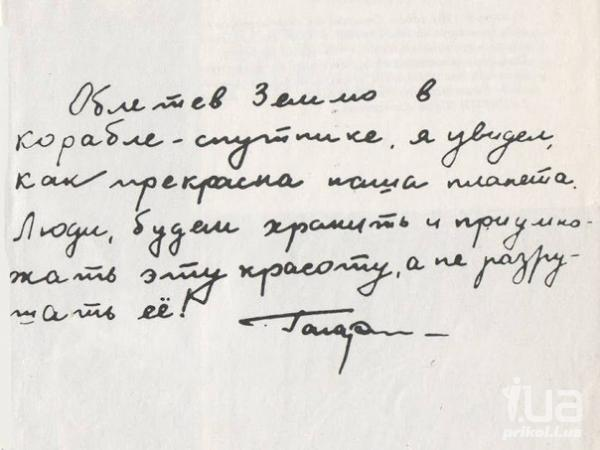 Облетев Землю в
корабле-спутнике, я увидел,
как прекрасна наша планета.
Люди, будем хранить и приумно-
жать эту красоту, а не разру-
шать её!
Гагарин
i.ua
prikol.i.ua